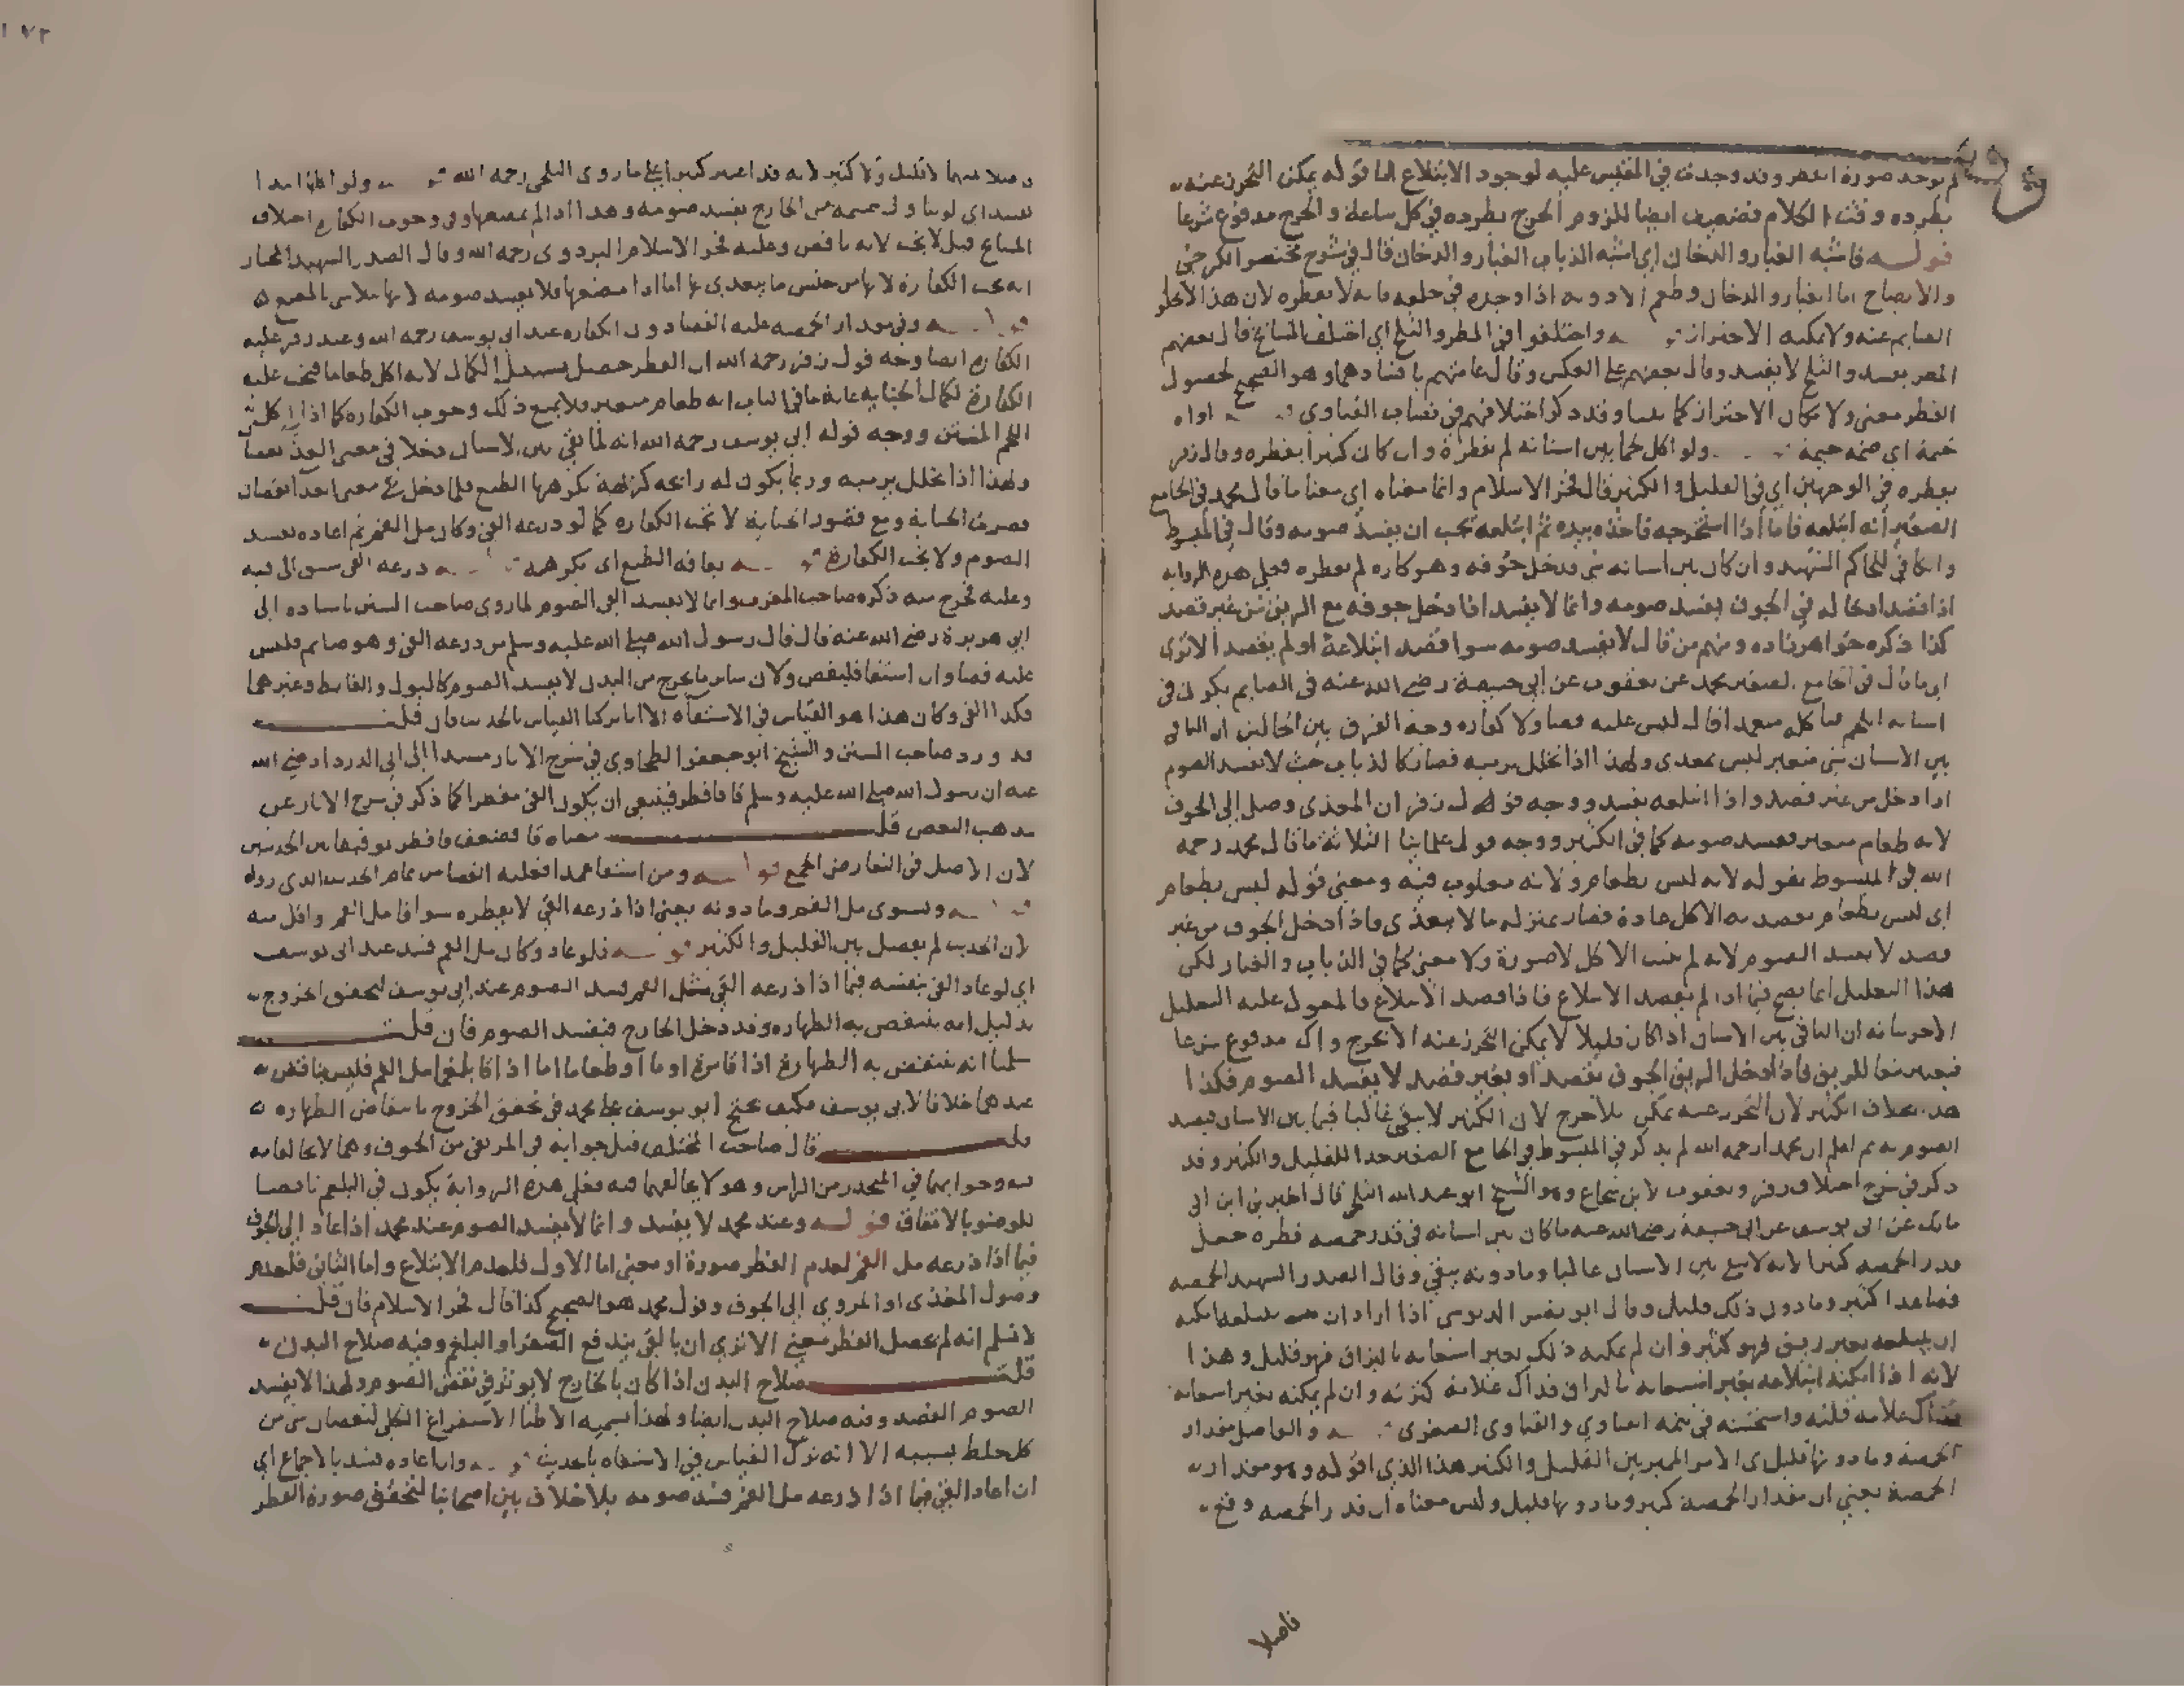 لم توجد صورة الفطر وقد وجدت في المقيس عليه لوجود الابتلاع اما قوله يمكن التحرز عنه
بطرده وقت الكلام فضعيف ايضا للزوم الحرج بطرده في كل ساعة والحرج مدفوع شرعا
قوله فاشبه الغبار والدخان اي اشبه الذباب الغبار والدخان قال في شرح مختصر الكرخي
والايضاح اما الغبار والدخان وطعم الادوية اذا وجده في حلقه فانه لا يفطره لان هذا لا يخلو
الصايم عنه ولا يمكنه الاحتراز قوله واختلفوا في المطر والثلج اي اختلف المشايخ قال بعضهم
المطر يفسد والثلج لا يفسد وقال بعضهم على العكس وقال عامتهم بافسادهما وهو الصحيح لحصول
الفطر معنى ولامكان الاحتراز كما بينا وقد ذكر اختلافهم في الفتاوي اواه
خيمة اي ضمه خيمة ولو اكل لحما بين اسنانه لم يفطره وان كان كثيرا يفطره وقال زفر
يفطره في الوجهين اي في القليل والكثير قال فخر الاسلام وانما معناه اي معنى ما قال محمد في الجامع
الصغير انه ابتلعه فاما اذا استخرجه فاخذه بيده ثم ابتلعه يجب ان يفسد صومه وقال في المبسوط
والكافي للحاكم الشهيد وان كان بين اسنانه شي فدخل جوفه وهو كاره لم يفطره فعلى هذه الرواية
اذا قصد ادخاله في الجوف يفسد صومه وانما لا يفسد اذا دخل جوفه مع الريق من غير قصد
كذا ذكره خواهر زاده ومنهم من قال لا يفسد صومه سوا قصد ابتلاعه او لم يقصد الا ترى
الى ما قال في الجامع الصغير محمد عن يعقوب عن ابي حنيفة رضي الله عنه في الصايم يكون في
اسنانه اللحم فياكله متعمدا قال ليس عليه قضا ولا كفارة وجه الفرق بين الحالين ان الباقي
بين الاسنان شي متغير ليس بمغذي ولهذا اذا تخلل يرميه فصار كالذباب حيث لا يفسد الصوم
اذا دخل من غير قصد واذا ابتلعه يفسد ووجه قول زفر ان المغذي وصل الى الجوف
لانه طعام متغير فيفسد صومه كما في الكثير ووجه قول علمائنا الثلاثة ما قال محمد رحمه
الله في المبسوط بقوله لانه ليس بطعام ولانه مغلوب فيه ومعنى قوله ليس بطعام
اي ليس بطعام يقصد به الاكل عادة فصار بمنزلة ما لا يغذي فاذا دخل الجوف من غير
قصد لا يفسد الصوم لانه لم يثبت الاكل لا صورة ولا معنى كما في الذباب والغبار لكن
هذا التعليل انما يصح فيما اذا لم يقصد الابتلاع فاذا قصد الابتلاع فالمعول عليه التعليل
الاخر بيانه ان الباقي بين الاسنان اذا كان قليلا لا يمكن التحرز عنه الا بحرج وذاك مدفوع شرعا
فيصير تبعا للريق فاذا دخل الريق الجوف بقصد او بغير قصد لا يفسد الصوم فكذا
هذا بخلاف الكثير لان التحرز عنه يمكن بلا حرج لان الكثير لا يبقى غالبا فيما بين الاسنان فيفسد
الصوم به ثم اعلم ان محمدا رحمه الله لم يذكر في المبسوط والجامع الصغير حدا للقليل والكثير وقد
ذكر في شرح اختلاف زفر ويعقوب لابن شجاع وهو الشيخ ابو عبد الله الثلجي قال اخبرني ابن ابي
مالك عن ابي يوسف عن ابي حنيفة رضي الله عنه ما كان بين اسنانه في قدر حمصه فطره جعل
قدر الحمصه كثيرا لانه لا يبقى بين الاسنان غالبا وما دونه يبقى وقال الصدر الشهيد الحمصه
فصاعدا كثير وما دون ذلك قليل وقال ابو نصر الدبوسي اذا اراد ان يبتلعه امكنه
ان يبتلعه بغير ريق فهو كثير وان لم يمكنه ذلك بغير استعانة بالبزاق فهو قليل وهذا
لانه اذا امكنه ابتلاعه بغير استعانة بالبزاق فذاك علامة كثرته وان لم يمكنه بغير استعانة
فذاك علامة قلته واستحسنه في تتمة الفتاوي والفتاوى الصغرى قوله والفاصل مقدار
الحمصة وما دونها قليل اي الامر المميز بين القليل والكثير هذا الذي اقوله وهو مقدار
الحمصة يعني ان مقدار الحمصة كثير وما دونها قليل وليس معناه ان قدر الحمصه وقع
فاصلا
١٧٢
فاصلا بينهما لا قليل ولا كثير لانه قد اعتبر كثيرا على ما روى الثلجي رحمه الله قوله ولو اكلها ابتدا
يفسد اي لو تناول سمسمة من الخارج يفسد صومه وهذا اذا لم يمضغها وفي وجوب الكفارة اختلاف
المشايخ قيل لا يجب لانه ناقص وعليه فخر الاسلام البزدوي رحمه الله وقال الصدر الشهيد المختار
انه تجب الكفارة لانها من جنس ما يتغدى بها اما اذا مضغها فلا يفسد صومه لانها تتلاشى بالمضغ
قوله وفي مقدار الحمصه عليه القضا دون الكفارة عند ابي يوسف رحمه الله وعند زفر عليه
الكفارة ايضا وجه قول زفر رحمه الله ان الفطر حصل بسبيل الكمال لانه اكل طعاما فتجب عليه
الكفارة لكمال الجناية غاية ما في الباب انه طعام متغير فلا يمنع ذلك وجوب الكفارة كما اذا اكل
اللحم المنتن ووجه قوله ابي يوسف رحمه الله انه لما بقي بين الاسنان دخل في معنى الغذا نقصان
ولهذا اذا تخلل يرميه وربما يكون له رايحه كريهة يكرهها الطبع فلما دخل في معنى الغذا نقصان
قصرت الجناية ومع قصور الجناية لا تجب الكفارة كما لو ذرعه القي وكان مل الفم ثم اعاده يفسد
الصوم ولا يجب الكفارة قوله يعافه الطبع اي يكرهه قوله ذرعه القي سبق الى فيه
وغلبه فخرج منه ذكره صاحب المغرب وانما لا يفسد القي الصوم لما روى صاحب السنن باسناده الى
ابي هريرة رضي الله عنه قال قال رسول الله صلى الله عليه وسلم من ذرعه القي وهو صايم فليس
عليه قضا وان استقا فليقض ولان ساير ما يخرج من البدن لا يفسد الصوم كالبول والغايط وغيرهما
فكذا القي وكان هذا هو القياس في الاستقاء الا انا تركنا القياس بالحديث فان قلت
قد ورد صاحب السنن والشيخ ابو جعفر الطحاوي في شرح الاثار مسندا الى ابي الدرداء رضي الله
عنه ان رسول الله صلى الله عليه وسلم قاء فافطر فينبغي ان يكون القي مفطرا كما ذكر في شرح الاثار عن
مذهب البعض قلت معناه قاء فضعف فافطر توفيقا بين الحديثين
لان الاصل في التعارض الجمع قوله ومن استقا عمدا فعليه القضا من تمام الحديث الذي رواه
قوله ويستوي مل الفم وما دونه يعني اذا ذرعه القي لا يفطره سوا قا مل الفم او اقل منه
لان الحديث لم يفصل بين القليل والكثير قوله فلو عاد وكان مل الفم فسد عند ابي يوسف
اي لو عاد القي بنفسه فيما اذا ذرعه القي مثل الفم فسد الصوم عند ابي يوسف لتحقق الخروج
بدليل انه ينتقض به الطهارة وقد دخل الخارج فيفسد الصوم فان قلت
سلمنا انه ينتقض به الطهارة اذا قا مرة او ما او طعاما اما اذا قا بلغما مل الفم فليس بناقض
عندهما خلافا لابي يوسف فكيف يحتج ابو يوسف على محمد في تحقق الخروج بانتقاض الطهارة
قلت قال صاحب المختلف قيل جوابه في المرتقي من الجوف وهما لا يخالفانه
فيه وجوابهما في المنحدر من الراس وهو لا يخالفهما فيه فعلى هذه الرواية يكون في البلغم ناقضا
للوضو بالاتفاق قوله وعند محمد لا يفسد وانما لا يفسد الصوم عند محمد اذا عاد الى الجوف
فيما اذا ذرعه مل الفم لعدم الفطر صورة او معنى اما الاول فلعدم الابتلاع واما الثاني فلعدم
وصول المغذى او المروي الى الجوف وقول محمد هو الصحيح كذا قال فخر الاسلام فان قلت
لا نسلم انه لم يحصل الفطر معنى الا ترى ان بالقي يندفع الصفرا والبلغم وفيه صلاح البدن
قلت صلاح البدن اذا كان بالخارج لا يوثر في نقض الصوم ولهذا لا يفسد
الصوم الفصد وفيه صلاح البدن ايضا ولهذا يسميه الاطبا الاستفراغ الكلي لنقصان شي من
كل خلط بسببه الا انه ترك القياس في الاستقاء بالحديث قوله وان اعاده فسد بالاجماع اي
ان اعاد القي فيما اذا ذرعه مل الفم فسد صومه بلا خلاف بين اصحابنا لتحقق صورة الفطر